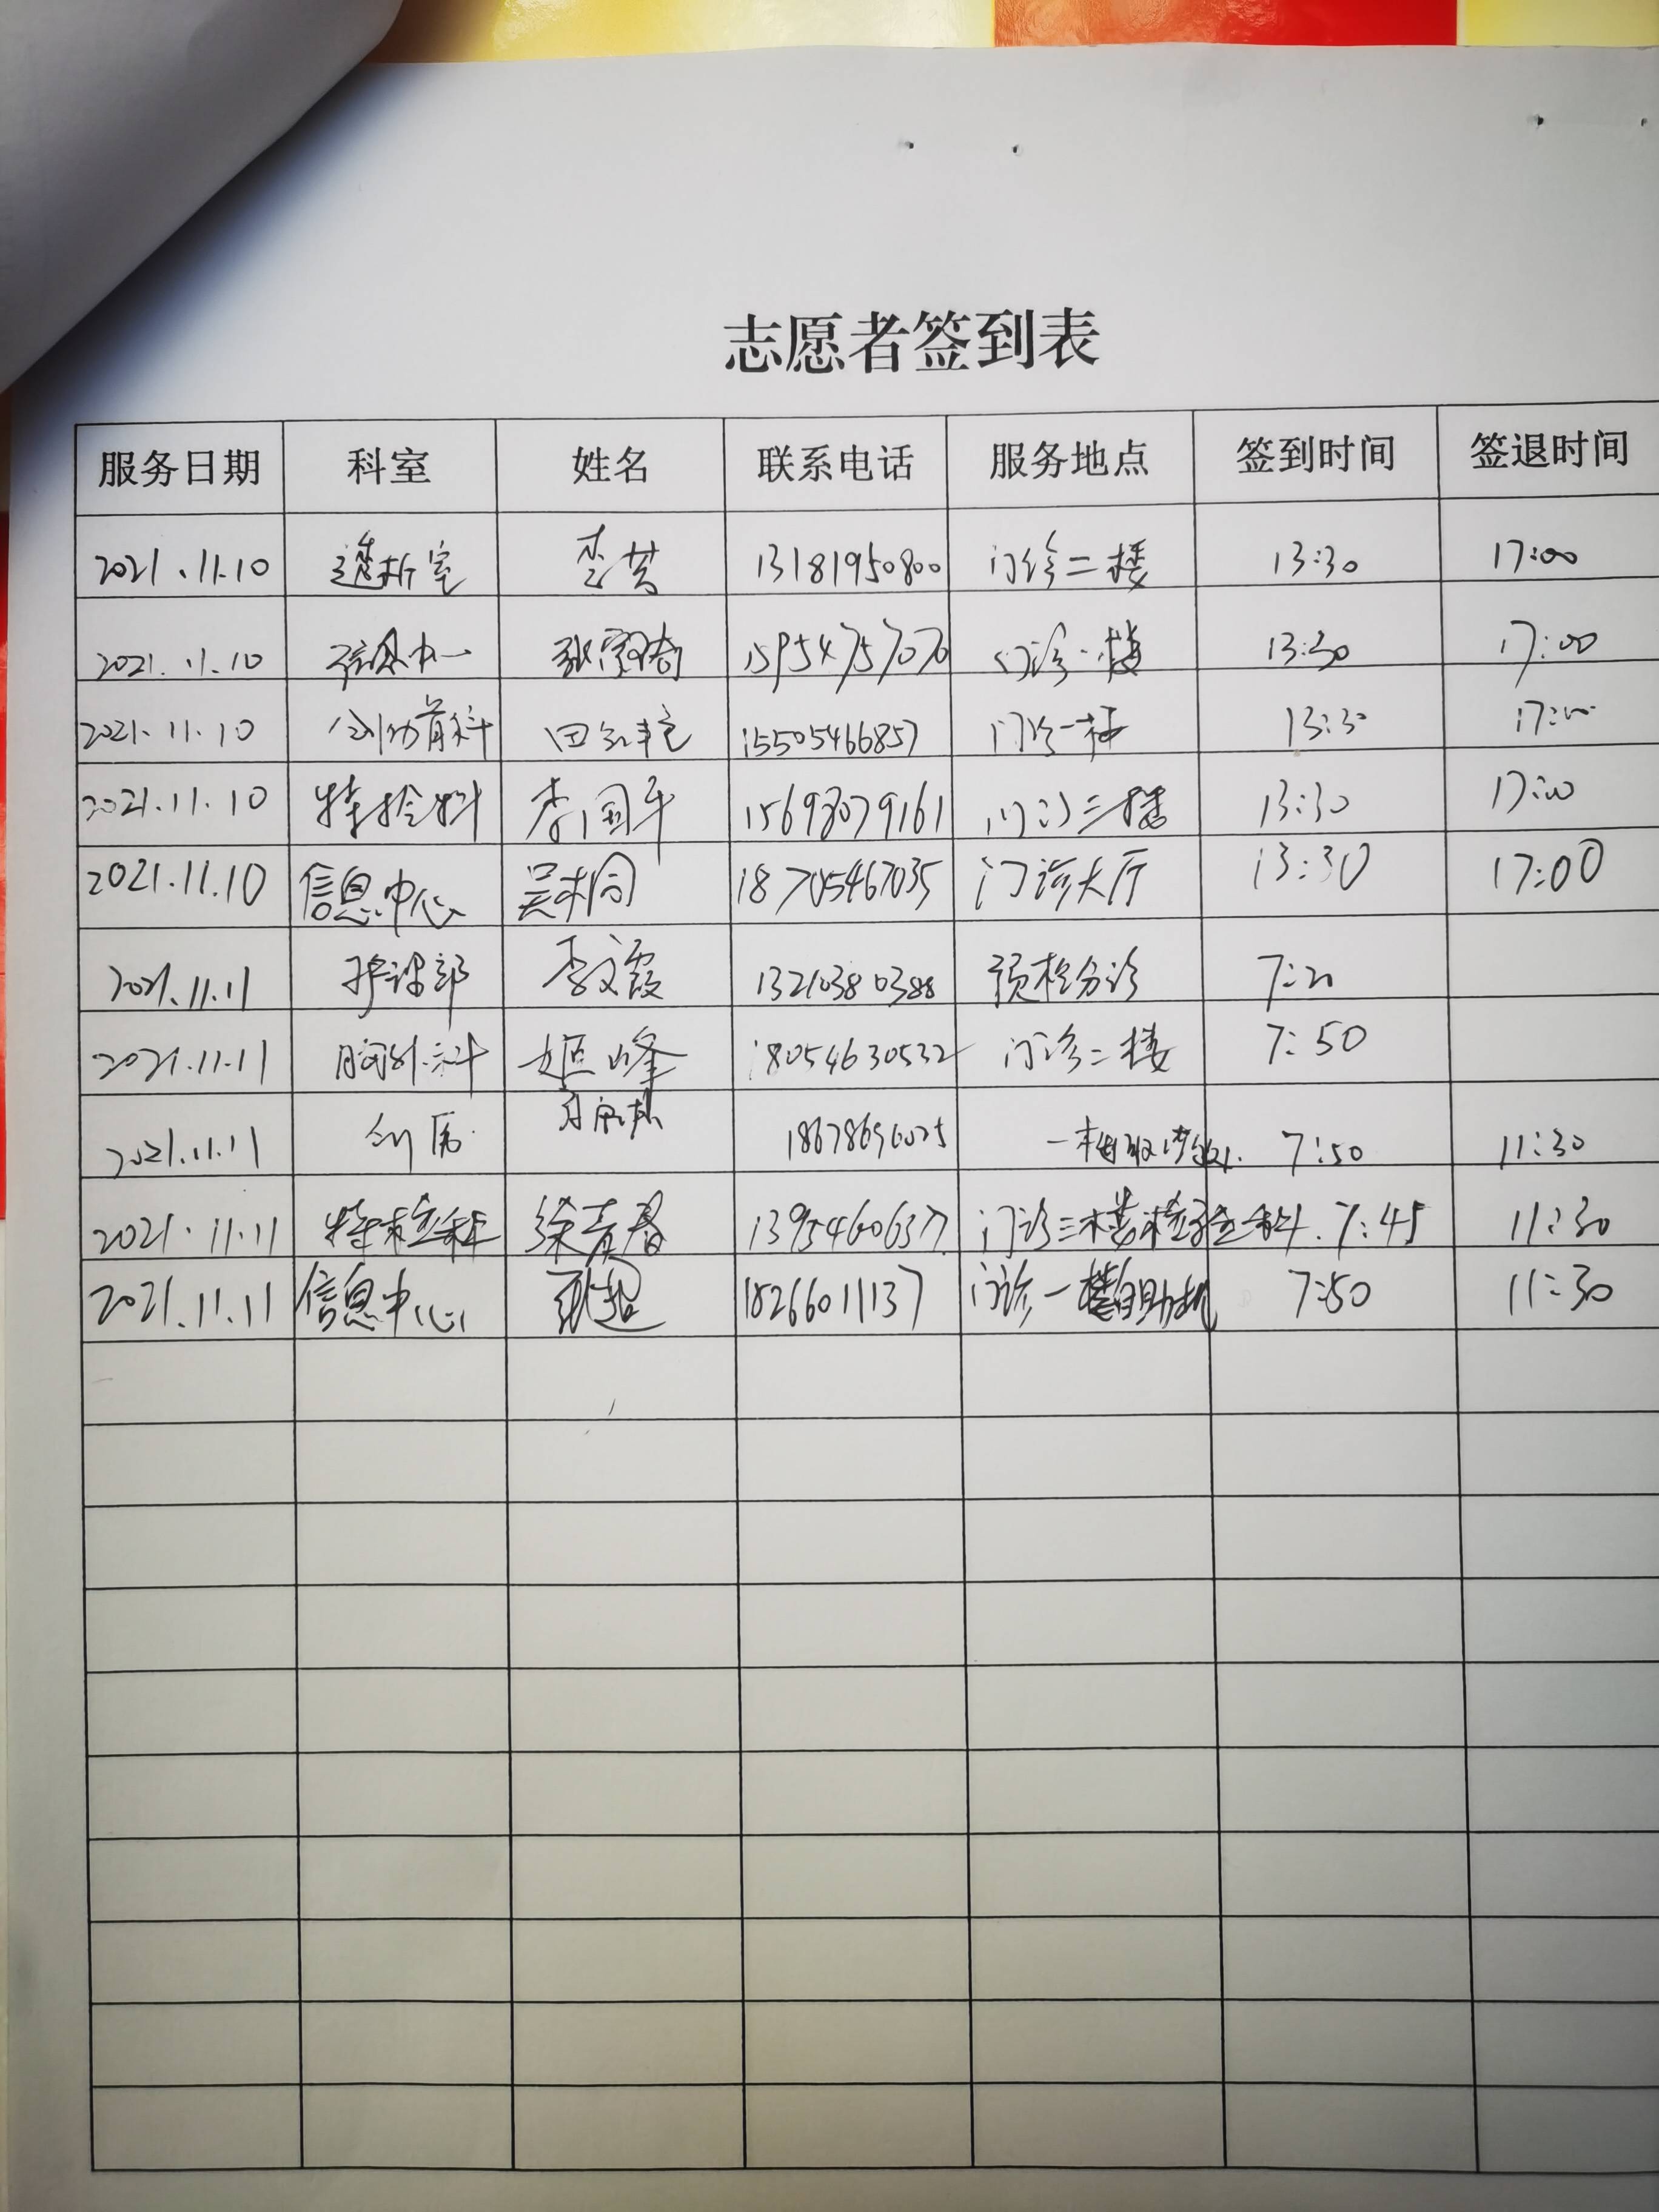 志愿者签到表
服务日期 科室 姓名 联系电话 服务地点 签到时间 签退时间
2021.11.10 透析室 李芸 13181950800 门诊二楼 13:30 17:00
2021.11.10 15954757070 门诊一楼 13:30 17:00
2021.11.10 创伤骨科 15505466857 门诊一楼 13:30 17:00
2021.11.10 特检科 李国平 15698079161 门诊三楼 13:30 17:00
2021.11.10 信息中心 吴桐 18705467035 门诊大厅 13:30 17:00
2021.11.11 护理部 李文霞 13210380388 预检分诊 7:20
2021.11.11 胸外科 姬峰 18054630532 门诊二楼 7:50
2021.11.11 一楼 7:50 11:30
2021.11.11 特检科 徐青春 门诊三楼检验科 7:45 11:30
2021.11.11 信息中心 张超 18266011137 门诊一楼自助机 7:50 11:30